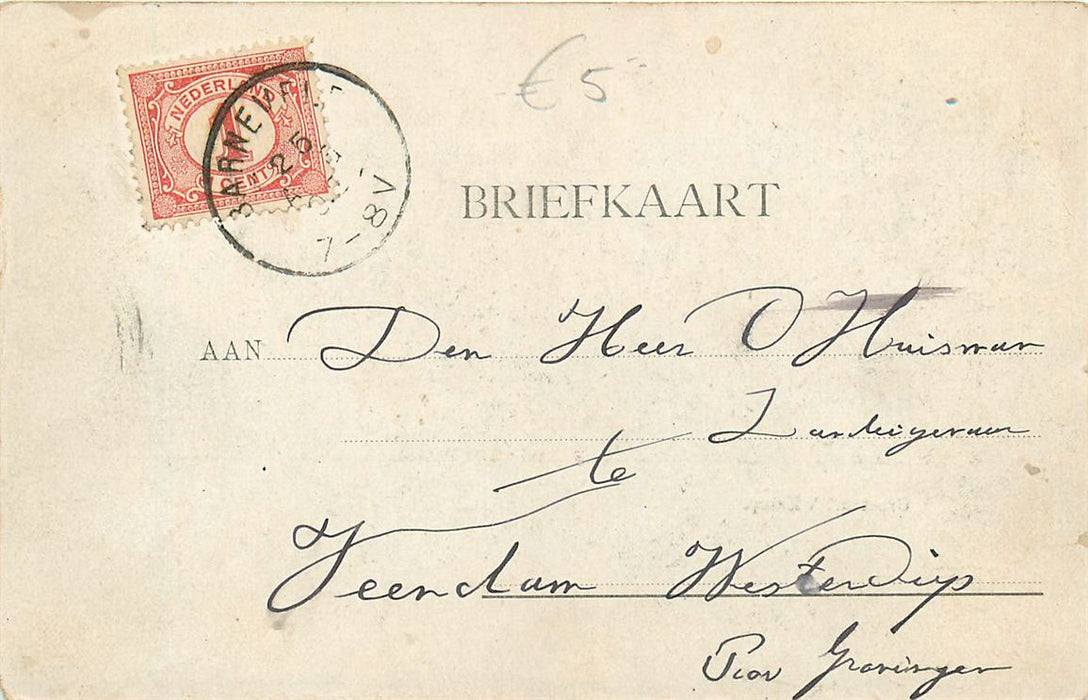 € 5-
NEDERLAND
1
CENT
BARNEVELD
25
7-8V
BRIEFKAART
AAN Den Heer O Huisman
Landeigenaar
te
Veendam Westerdiep
Prov Groningen